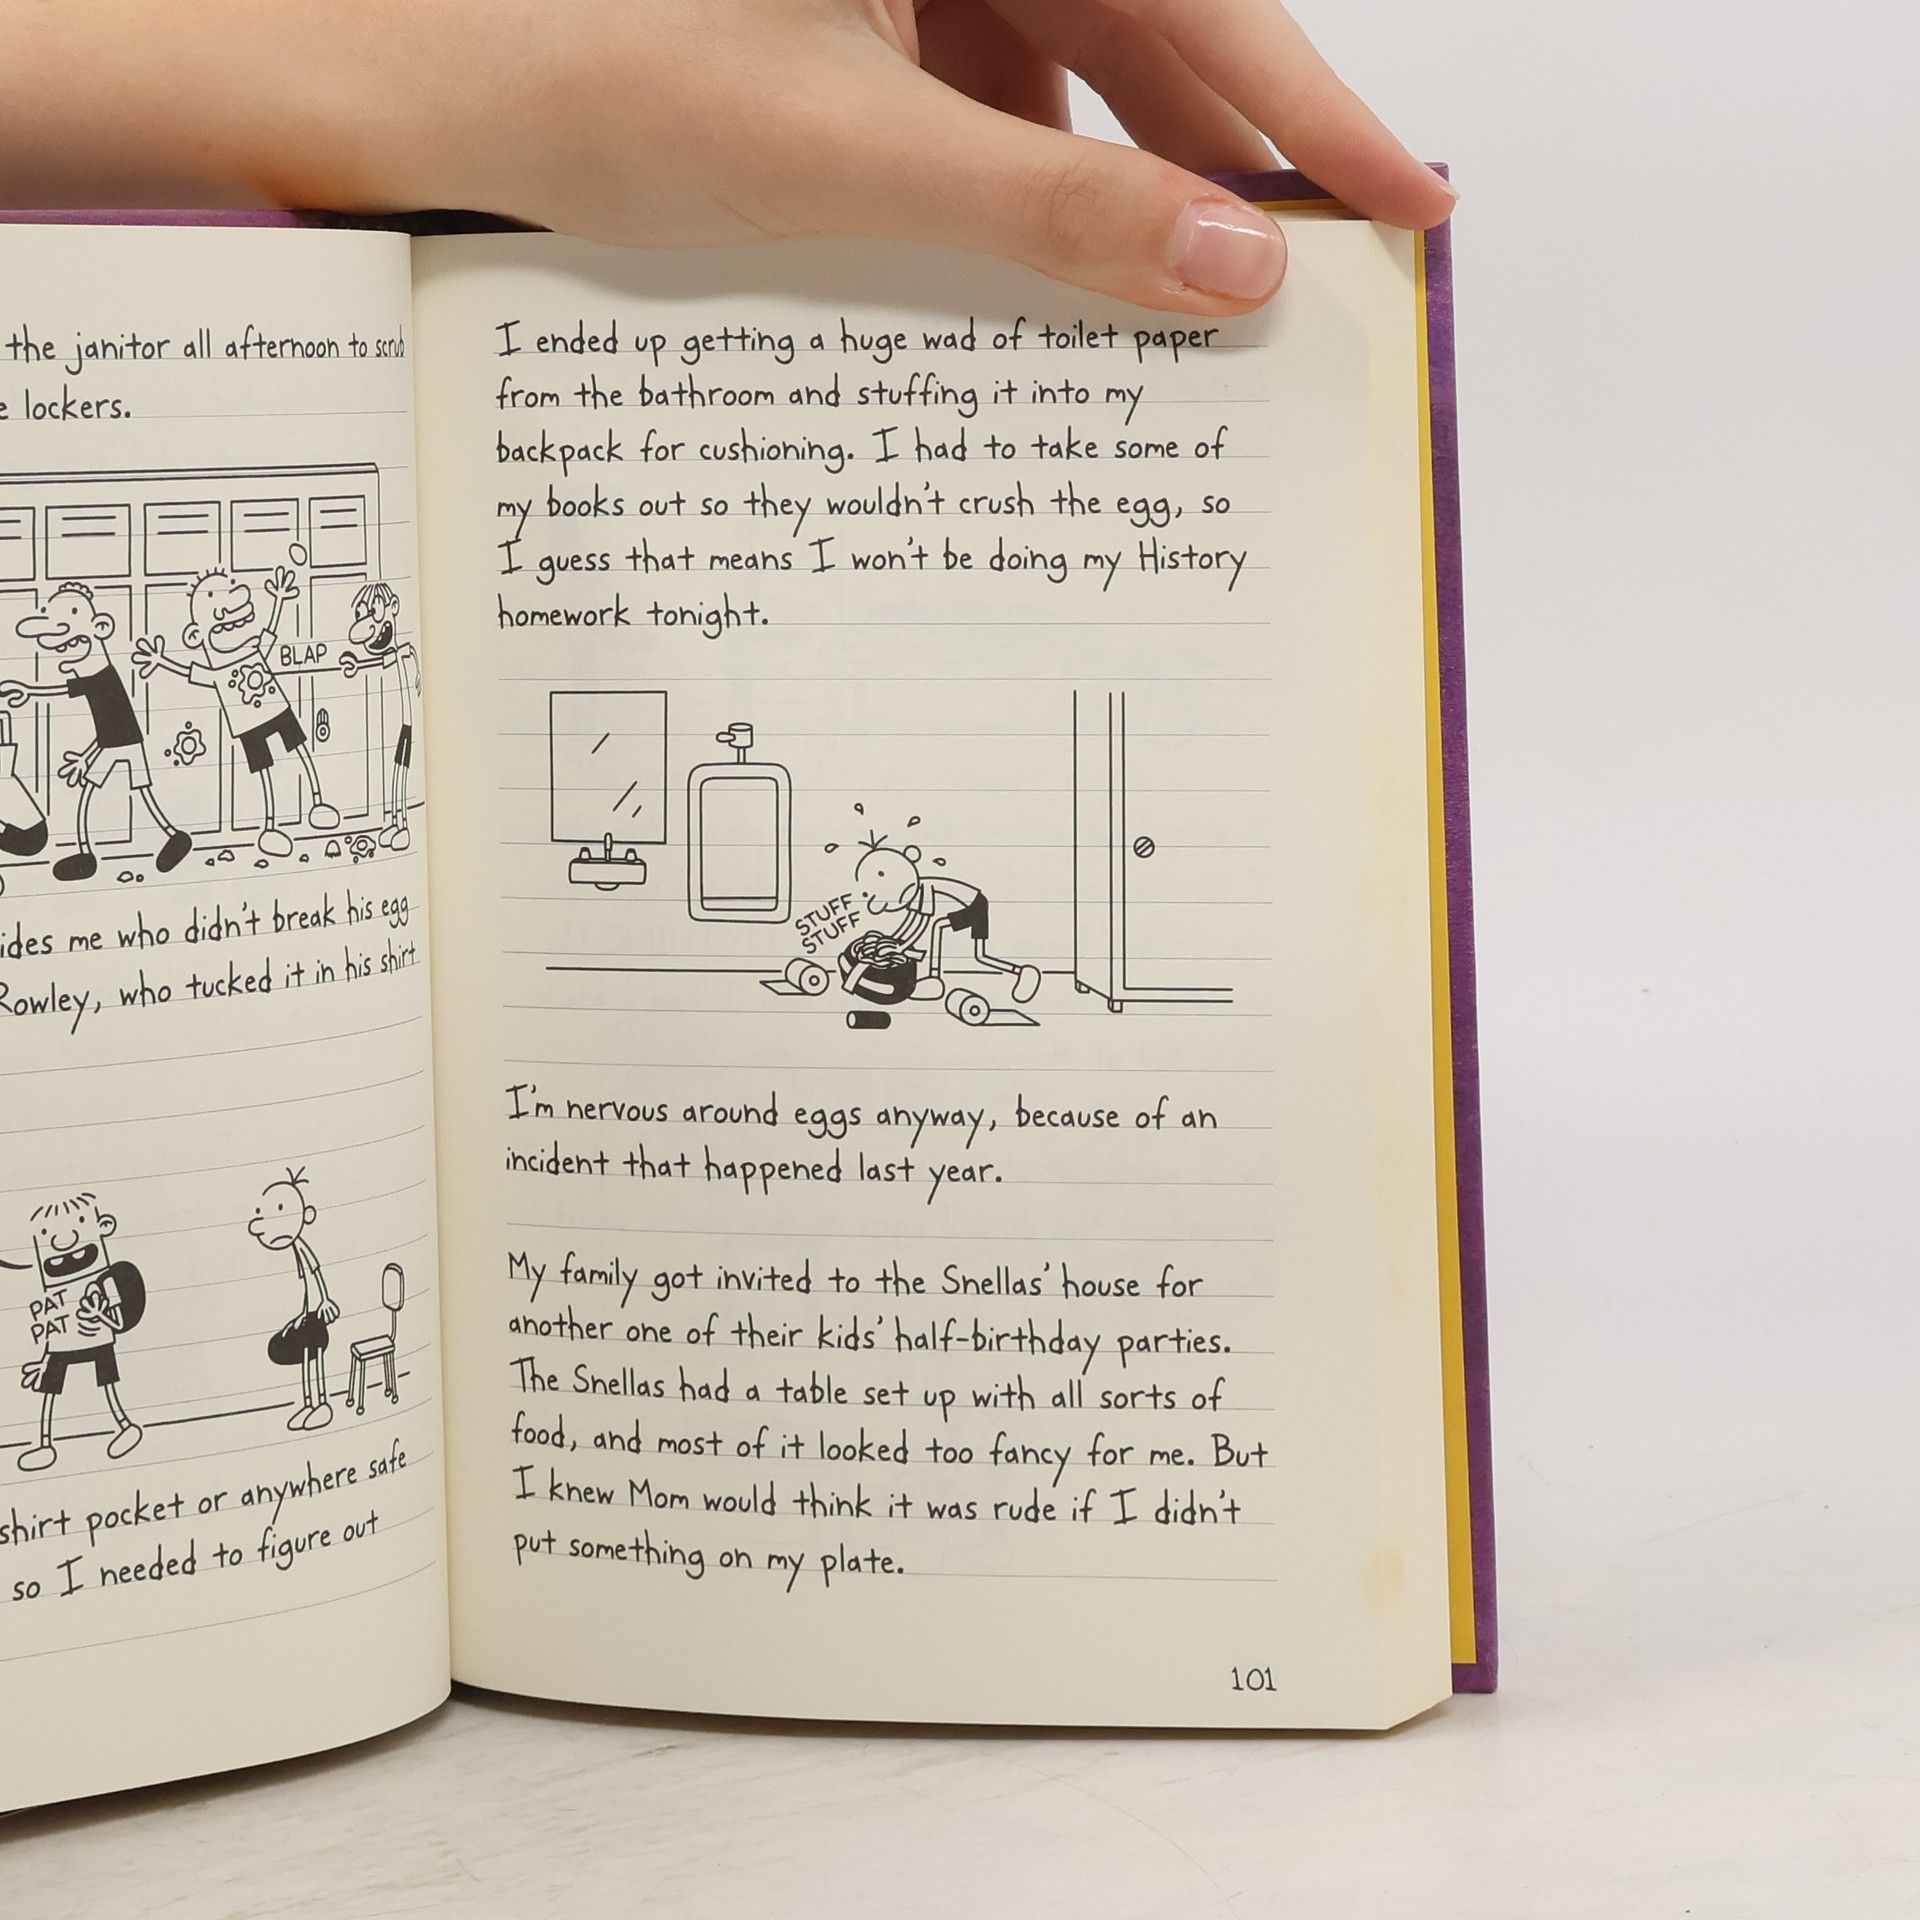 the janitor all afternoon to scrub
lockers.
BLAP
me who didn't break his egg
Rowley, who tucked it in his shirt
PAT
PAT
shirt pocket or anywhere safe
so I needed to figure out
I ended up getting a huge wad of toilet paper
from the bathroom and stuffing it into my
backpack for cushioning. I had to take some of
my books out so they wouldn't crush the egg, so
I guess that means I won't be doing my History
homework tonight.
STUFF
STUFF
I'm nervous around eggs anyway, because of an
incident that happened last year.
My family got invited to the Snellas' house for
another one of their kids' half-birthday parties.
The Snellas had a table set up with all sorts of
food, and most of it looked too fancy for me. But
I knew Mom would think it was rude if I didn't
put something on my plate.
101